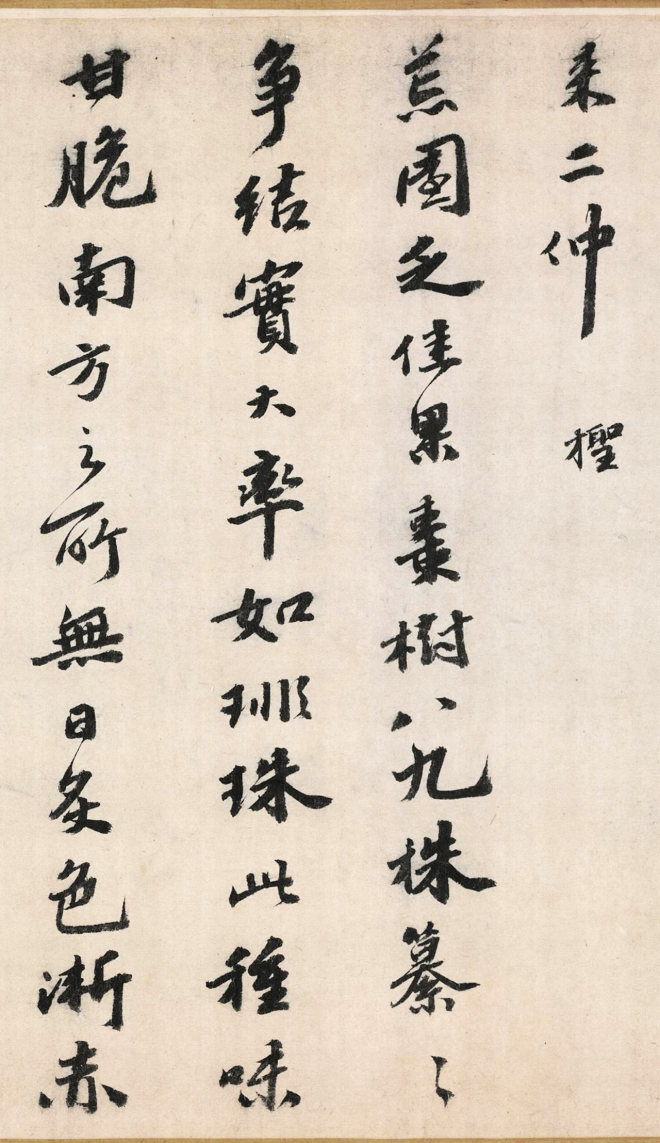 来二仲 檉
荒園乏佳果棗樹八九株纂〻
爭結實大率如琲珠此種味
甘脆南方之所無日炙色漸赤